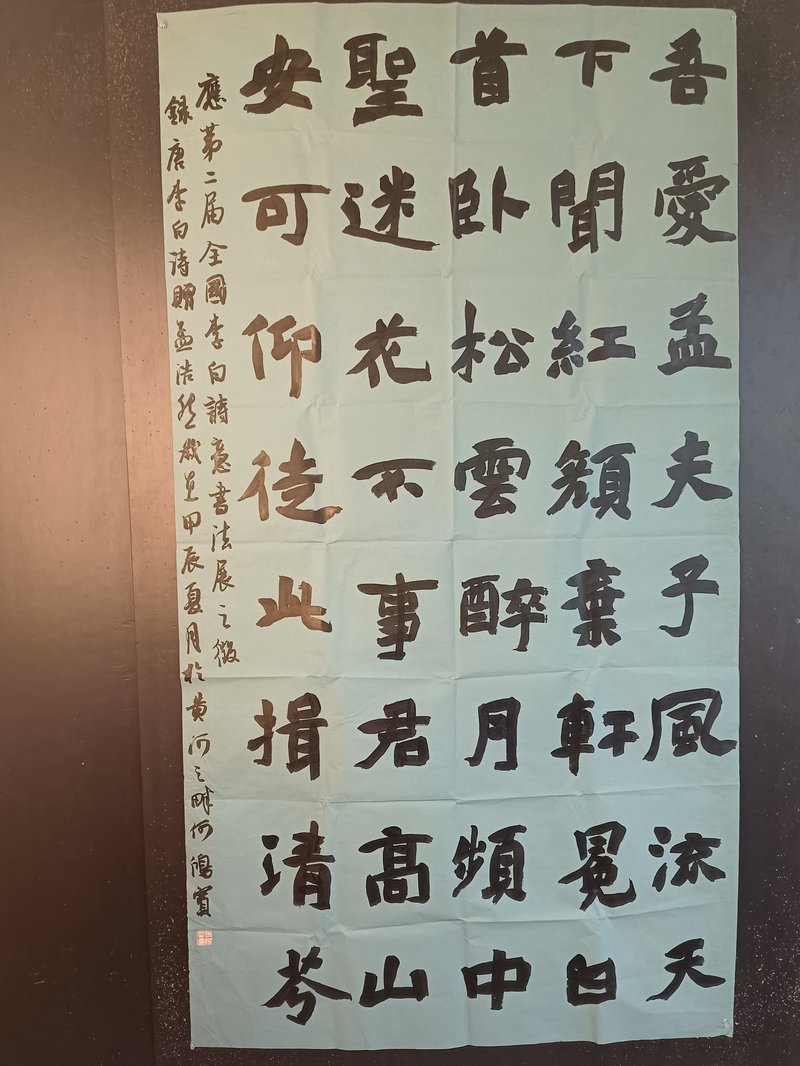 吾愛孟夫子風流天
下聞紅顔棄軒冕白
首卧松雲醉月頻中
聖迷花不事君高山
安可仰徒此揖清芬
應第二届全國李白詩意書法展之徵
録唐李白诗贈孟浩然歲在甲辰夏月於黄河之畔何鴻寶